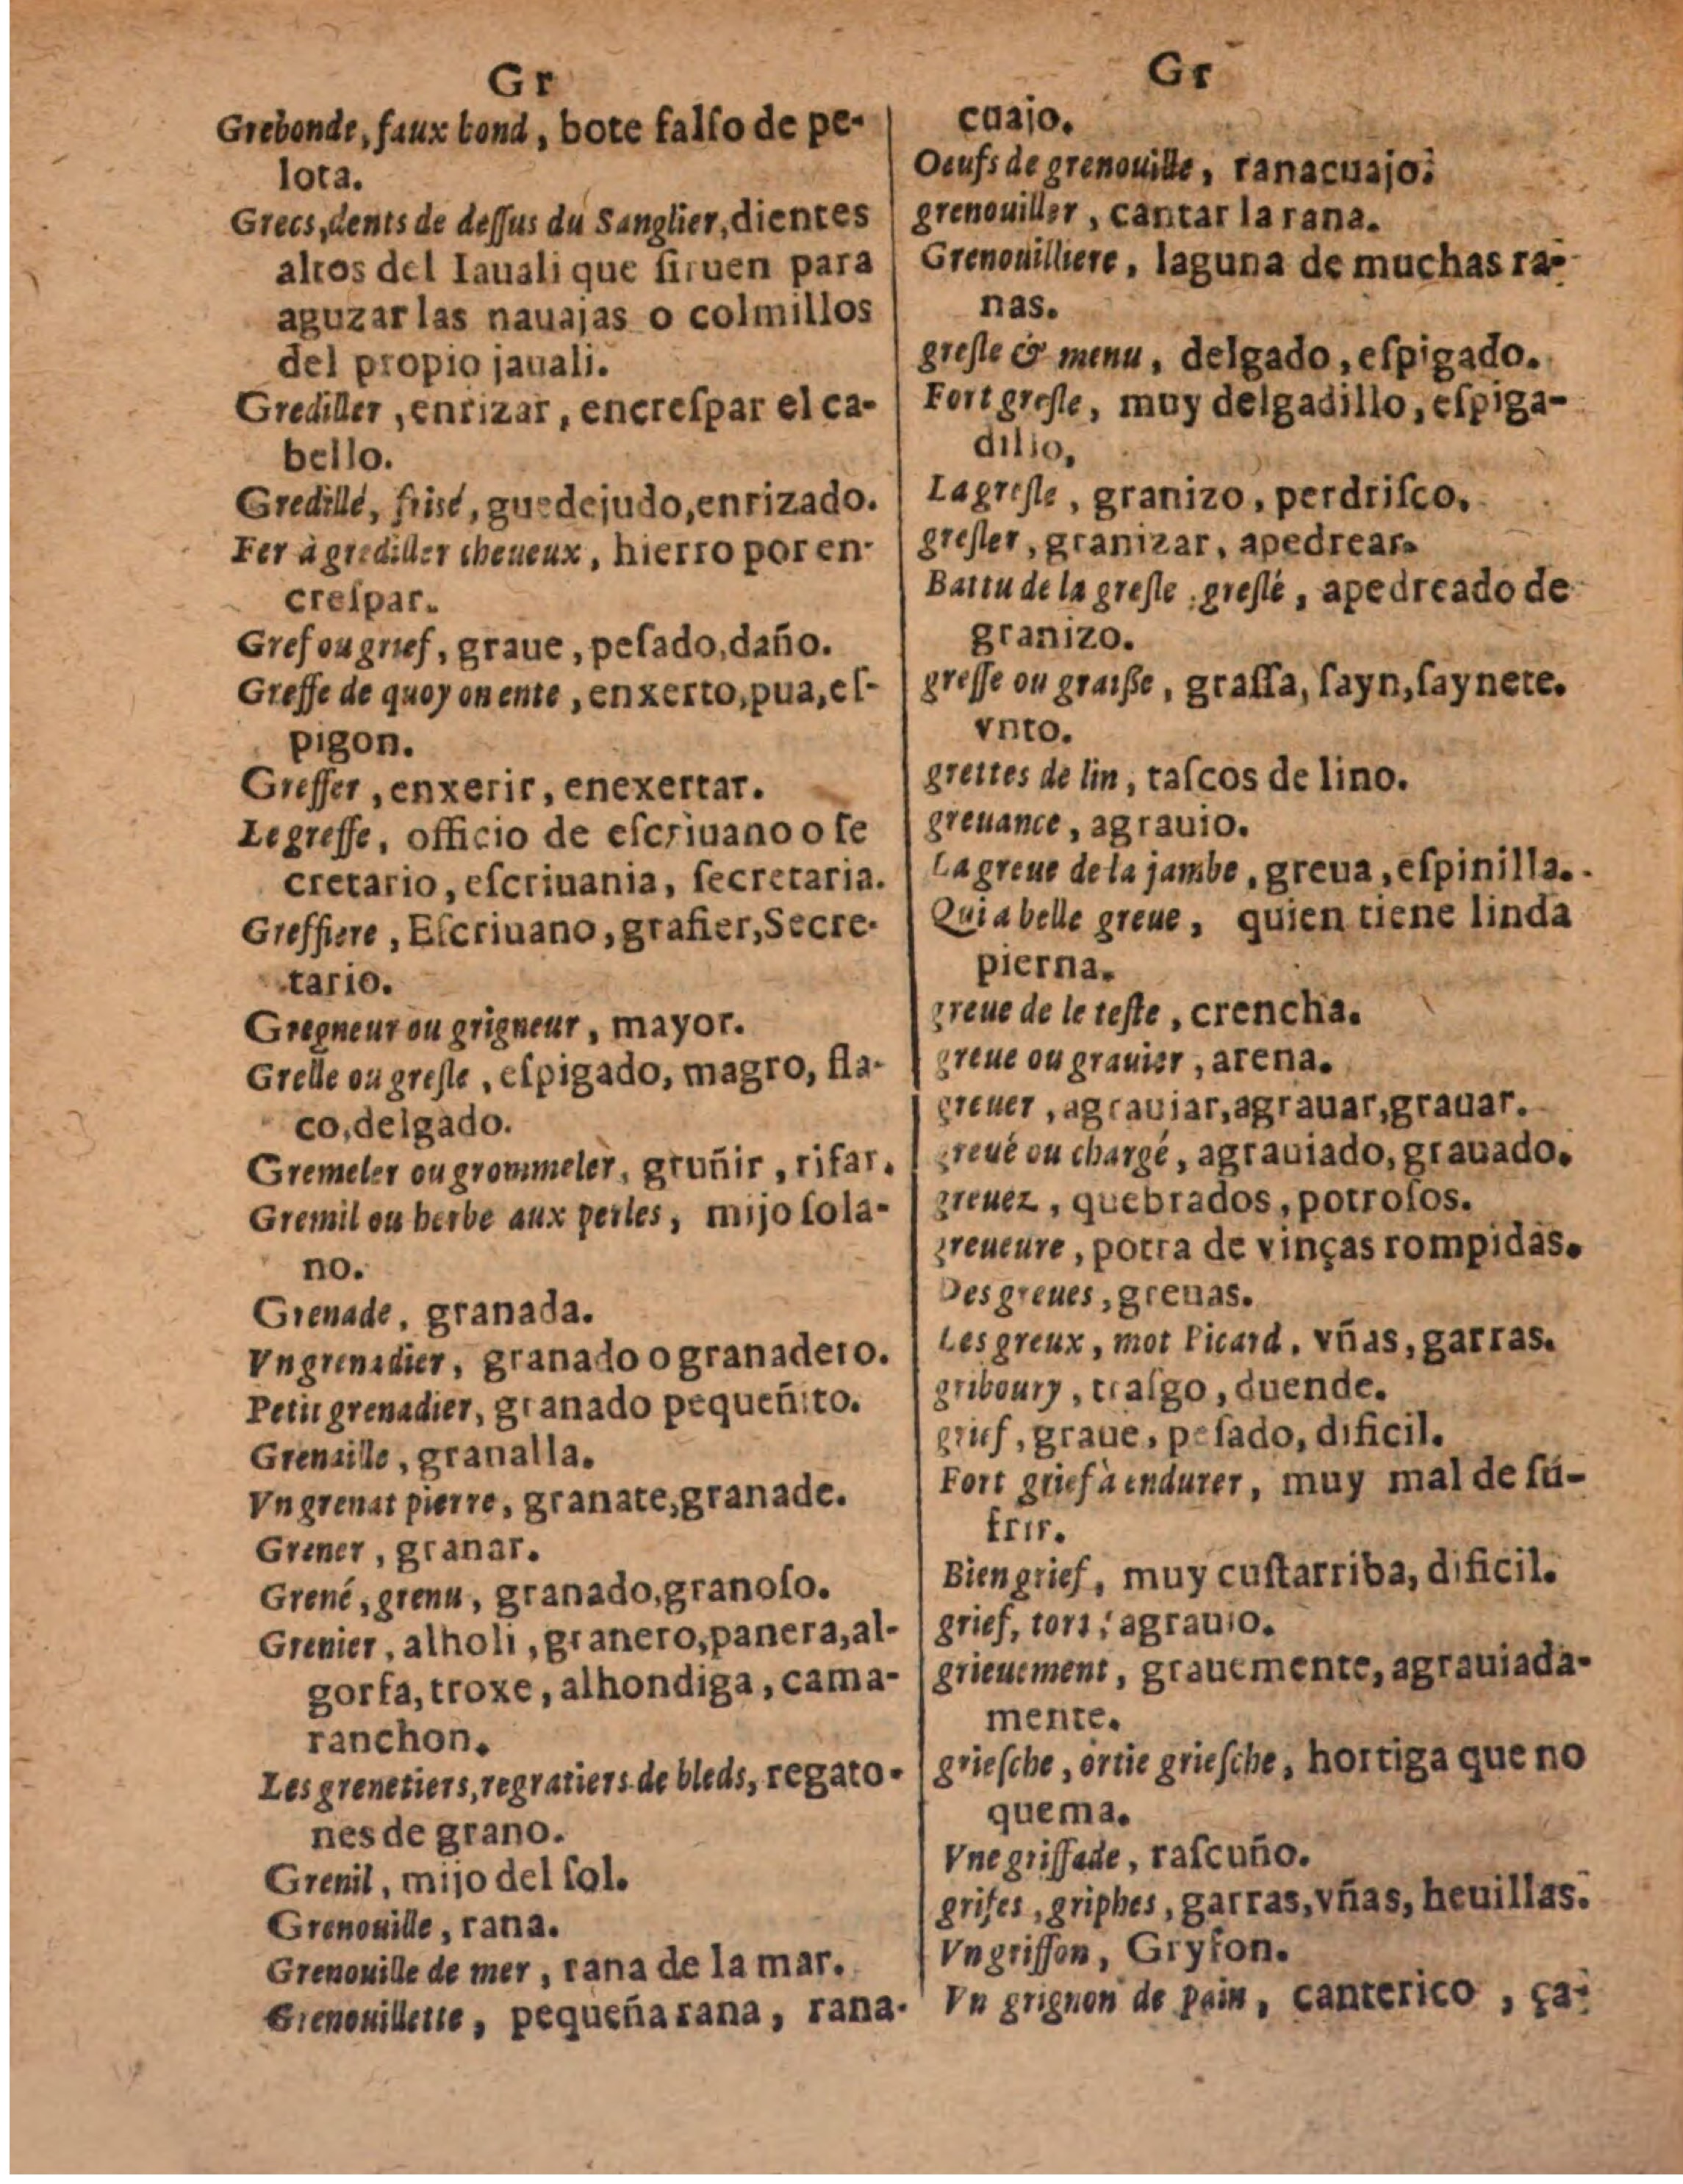 Gr
Grebonde, faux bond, bote falſo de pe-
lota.
Grecs, dents de deſſus du Sanglier, dientes
altos del Iauali que ſiruen para
aguzar las nauajas o colmillos
del propio jauali.
Grediller, enrizar, encreſpar el ca-
bello.
Gredillé, frisé, guedejudo, enrizado.
Fer à grediller cheueux, hierro por en-
creſpar.
Gref ou grief, graue, peſado, daño.
Greffe de quoy on ente, enxerto, pua, eſ-
pigon.
Greffer, enxerir, enexertar.
Le greffe, officio de eſcriuano o ſe
cretario, eſcriuania, ſecretaria.
Greffiere, Eſcriuano, grafier, Secre-
tario.
Gregneur ou grigneur, mayor.
Grelle ou greſle, eſpigado, magro, fla-
co, delgado.
Gremeler ou grommeler, gruñir, rifar.
Gremil ou herbe aux perles, mijo ſola-
no.
Grenade, granada.
Vn grenadier, granado o granadero.
Petit grenadier, granado pequeñito.
Grenaille, granalla.
Vn grenat pierre, granate, granade.
Grener, granar.
Grené, grenu, granado, granoſo.
Grenier, alholi, granero, panera, al-
gorfa, troxe, alhondiga, cama-
ranchon.
Les grenetiers, regratiers de bleds, regato-
nes de grano.
Grenil, mijo del ſol.
Grenouille, rana.
Grenouille de mer, rana de la mar.
Grenouillette, pequeña rana, rana-
Gr
cuajo.
Oeufs de grenouille, ranacuajo.
grenouiller, cantar la rana.
Grenouilliere, laguna de muchas ra-
nas.
greſle & menu, delgado, eſpigado.
Fort greſle, muy delgadillo, eſpiga-
dillo,
La greſle, granizo, perdriſco,
greſler, granizar, apedrear.
Battu de la greſle, greſlé, apedreado de
granizo.
greſſe ou graiße, graſſa, ſayn, ſaynete.
vnto.
grettes de lin, taſcos de lino.
greuance, agrauio.
La greue de la jambe, greua, eſpinilla.
Qui a belle greue, quien tiene linda
pierna.
greue de le teſte, crencha.
greue ou grauier, arena.
greuer, agrauiar, agrauar, grauar.
greué ou chargé, agrauiado, grauado.
greuez, quebrados, potroſos.
greueure, potra de vinças rompidas.
Des greues, greuas.
Les greux, mot Picard, vñas, garras.
griboury, traſgo, duende.
grief, graue, peſado, dificil.
Fort grief à endurer, muy mal de ſu-
frir.
Bien grief, muy cuſtarriba, dificil.
grief, tort, agrauio.
grieuement, grauemente, agrauiada-
mente.
grieſche, ortie grieſche, hortiga que no
quema.
Vne griffade, raſcuño.
grifes, griphes, garras, vñas, heuillas.
Vn griffon, Gryfon.
Vn grignon de pain, canterico, ça-